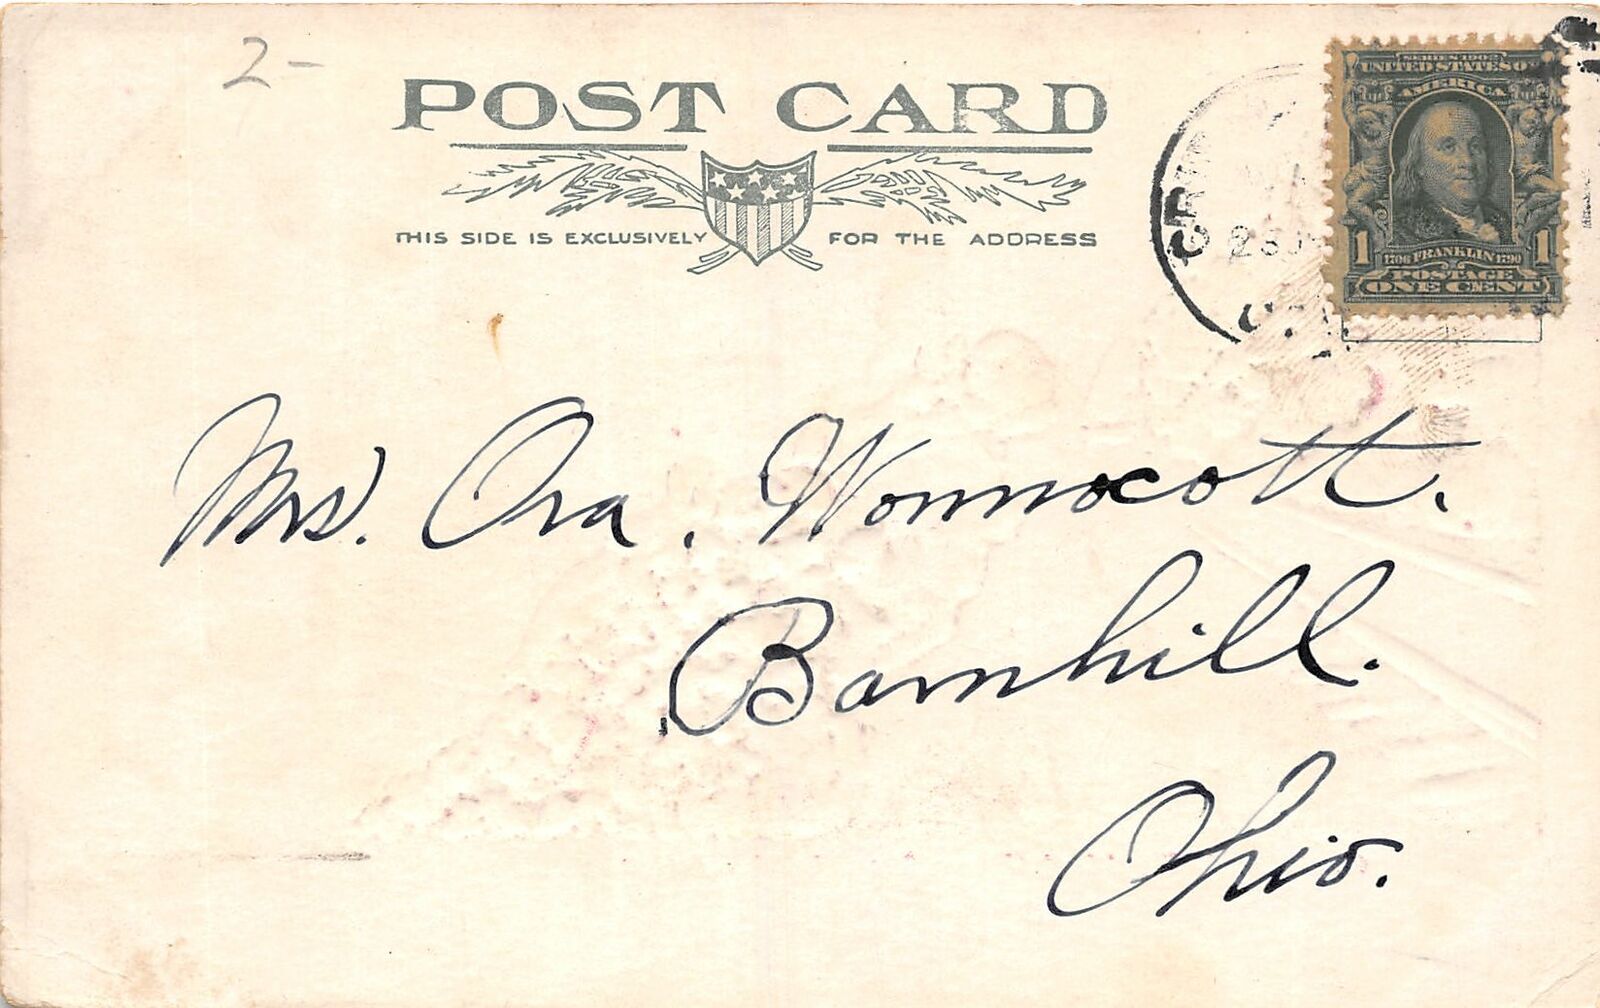 2-
POST CARD
THIS SIDE IS EXCLUSIVELY FOR THE ADDRESS
SERIES 1902
UNITED STATES OF
AMERICA
1 1706 FRANKLIN 1790 1
POSTAGE
ONE CENT
Mrs. Ora. Wonnocott.
Barnhill.
Ohio.